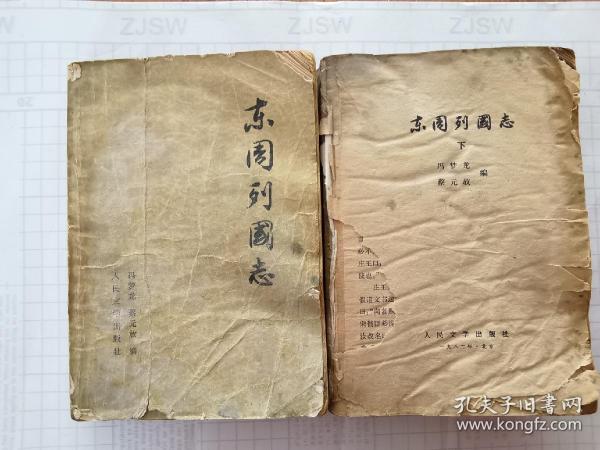 ZJSW
ZJSW
东周列國志
冯梦龙 蔡元放 编
人民文学出版社
东周列國志
下
冯梦龙
蔡元放
编
庄王
人民文学出版社
一九八二年·北京
孔夫子旧書网
www.kongfz.com